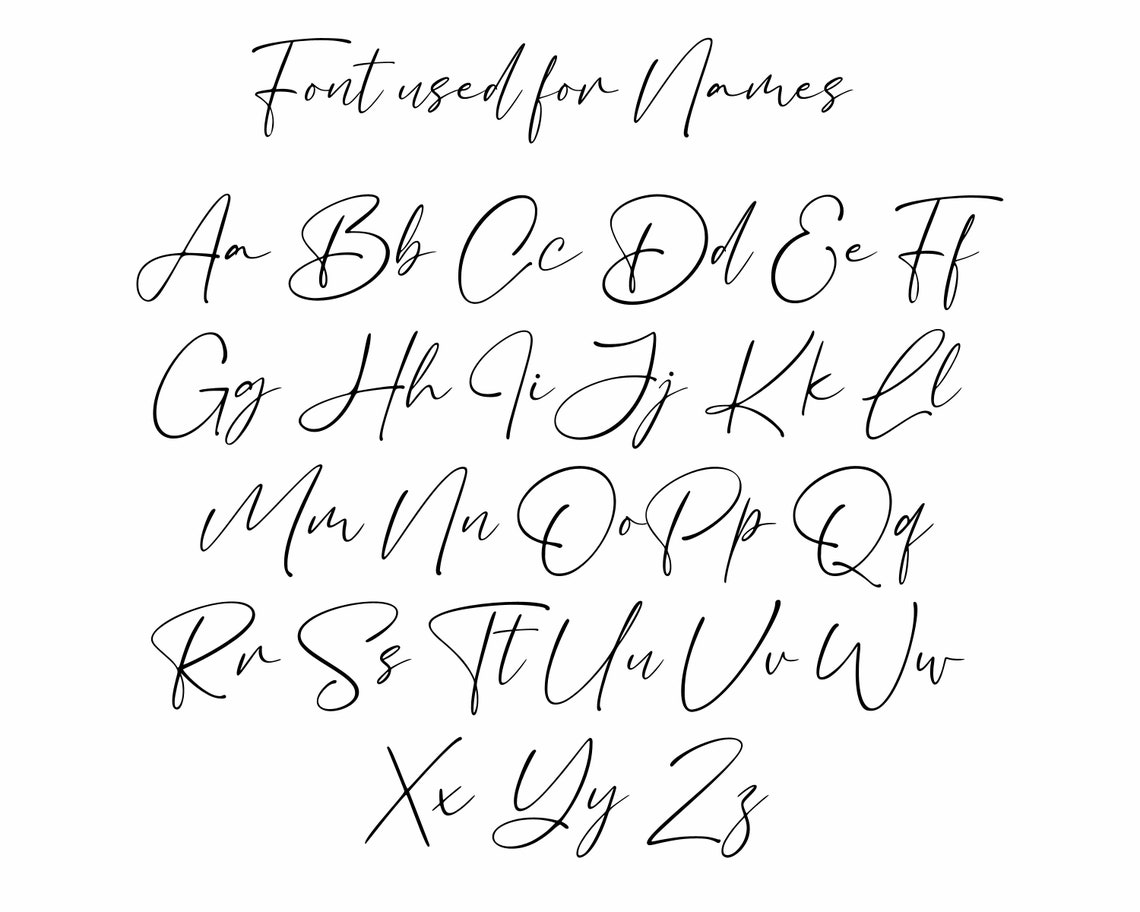 Font used for Names
Aa Bb Cc Dd Ee Ff
Gg Hh Ii Jj Kk Ll
Mm Nn Oo Pp Qq
Rr Ss Tt Uu Vv Ww
Xx Yy Zz